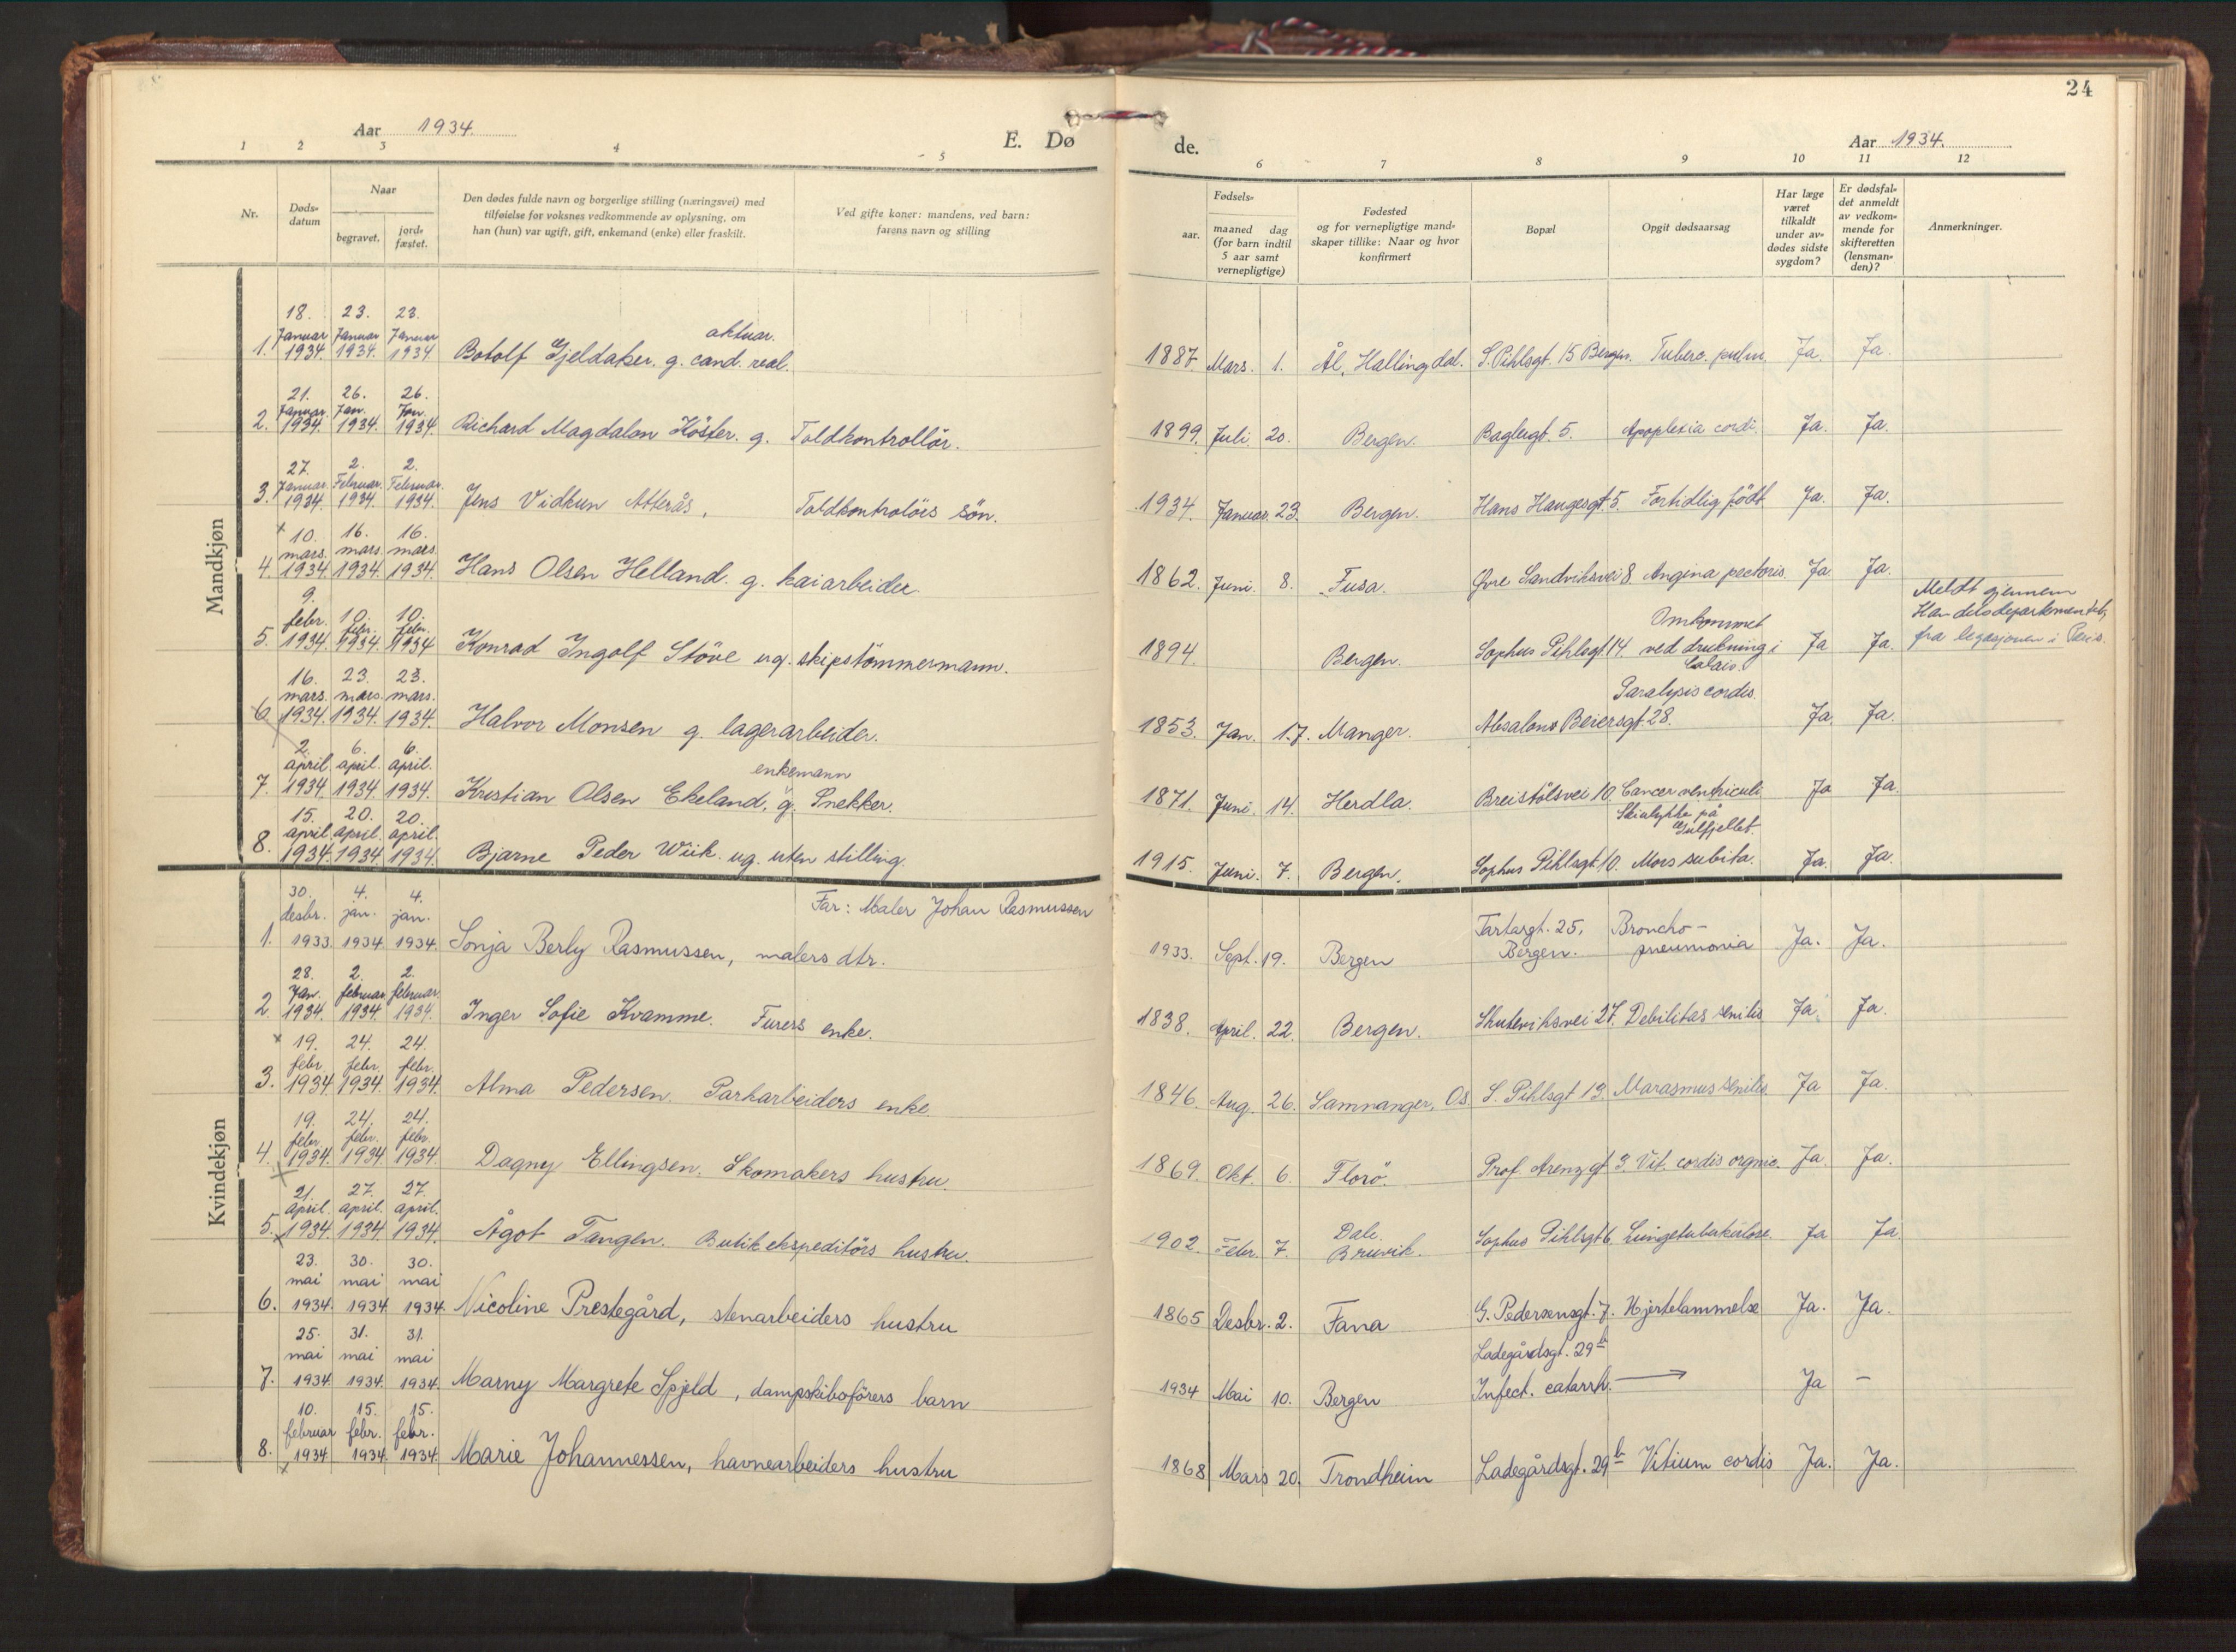 24
Aar 1934.
E. Dø
de.
Aar 1934.
1 2 3 4 5 6 7 8 9 10 11 12
Nr.
Døds-
datum
Naar
begravet.
jord-
fæstet.
Den dødes fulde navn og borgerlige stilling (næringsvei) med
tilføielse for voksnes vedkommende av oplysning, om
han (hun) var ugift, gift, enkemand (enke) eller fraskilt.
Ved gifte koner: mandens, ved barn:
farens navn og stilling
Fødsels-
aar.
maaned dag
(for barn indtil
5 aar samt
vernepligtige)
Fødested
og for vernepligtige mand-
skaper tillike: Naar og hvor
konfirmert
Bopæl
Opgit dødsaarsag
Har læge
været
tilkaldt
under av-
dødes sidste
sygdom?
Er dødsfal-
det anmeldt
av vedkom-
mende for
skifteretten
(lensman-
den)?
Anmerkninger.
Mandkjøn
18. 23. 23.
Januar Januar Januar aktuar.
1. 1934. 1934. 1934 Botolf Gjeldaker. g. cand. real. 1887. Mars. 1. Ål, Hallingdal. S. Pihlsgt. 15 Bergen. Tuberc. pulm. Ja. Ja.
21. 26. 26.
Januar. Jan. Jan.
2. 1934. 1934. 1934. Richard Magdalon Köster. g. Toldkontrollör. 1899. Juli. 20. Bergen. Baglergt. 5. Apoplexia cordi. Ja. Ja.
27. 2. 2.
Januar. Februar. Februar.
3. 1934. 1934. 1934. Jens Vidkun Atterås, Toldkontrolörs sön. 1934. Januar. 23. Bergen. Hans Haugesgt. 5. Fortidlig födt Ja. Ja.
10. 16. 16.
mars. mars. mars.
4. 1934. 1934. 1934. Hans Olsen Helland. g. kaiarbeider. 1862. Juni. 8. Fusa. Øvre Sandviksvei 8 Angina pectoris. Ja. Ja.
9.
febr. 10. febr. 10. febr. Omkommet Meldt gjennem
5. 1934. 1934. 1934 Konrad Ingolf Stöve ug. skipstömmermann. 1894. Bergen. Sophus Pihlsgt. 14. ved drukning i Calais. Ja Ja. Handelsdepartementet, fra legasjonen i Paris.
16. 23. 23.
mars. mars. mars. Paralysis cordis.
6. 1934. 1934. 1934. Halvor Monsen g. lagerarbeider. 1853. Jan. 17. Manger. Absalons Beiersgt. 28. Ja Ja.
2. 6. 6.
april. april. april. enkemann
7. 1934. 1934. 1934. Kristian Olsen Ekeland, g. Snekker. 1871. Juni. 14. Herdla. Breistölsvei 10. Cancer ventriculi Ja Ja.
15. 20. 20. Skiulykke på
april. april. april. Gulfjellet.
8. 1934. 1934. 1934. Bjarne Peder Wiik. ug. uten stilling. 1915. Juni. 7. Bergen. Sophus Pihlsgt. 10. Mors subita. Ja. Ja.
Kvindekjøn
30. 4. 4. Far: Maler Johan Rasmussen
desbr. jan. jan.
1. 1933. 1934. 1934. Sonja Berly Rasmussen, malers dtr. 1933. Sept. 19. Bergen Tartargt. 25, Bergen. Broncho-pneumonia Ja. Ja.
28. 2. 2.
Jan. februar februar.
2. 1934. 1934. 1934. Inger Sofie Kvamme. Furers enke. 1838. April. 22. Bergen. Skuteviksvei 27. Debilitas senilis Ja. Ja.
19. 24. 24.
febr. febr. febr.
3. 1934. 1934. 1934. Alma Pedersen. Parkarbeiders enke. 1846. Aug. 26. Samnanger, Os S. Pihlsgt 13. Marasmus senilis. Ja Ja.
19. 24. 24.
febr. febr. febr.
4. 1934. 1934 1934. Dagny Ellingsen. Skomakers hustru. 1869. Okt. 6. Florö. Prof. Arenzgt 3. Vit. cordis organic. Ja. Ja.
21. 27. 27.
april. april. april. Dale.
5. 1934. 1934. 1934. Ågot Tangen. Butikekspeditörs hustru. 1902. Febr. 7. Bruvik. Sophus Pihlsgt 6. Lungetuberkulose. Ja Ja
23. 30. 30.
mai mai mai
6. 1934. 1934 1934. Nicoline Prestegård, stenarbeiders hustru 1865 Desbr. 2. Fana G. Pedersensgt. 7. Hjertelammelse Ja. Ja.
25. 31. 31. Ladegårdsgt. 29b
mai mai mai
7. 1934. 1934. 1934. Marny Margrete Spjeld, dampskibsförers barn 1934 Mai 10. Bergen Infect. catarrh. → Ja –
10. 15. 15.
februar febr. febr.
8. 1934 1934 1934. Marie Johannessen, havnearbeiders hustru 1868 Mars 20. Trondheim Ladegårdsgt. 29b Vitium cordis Ja. Ja.